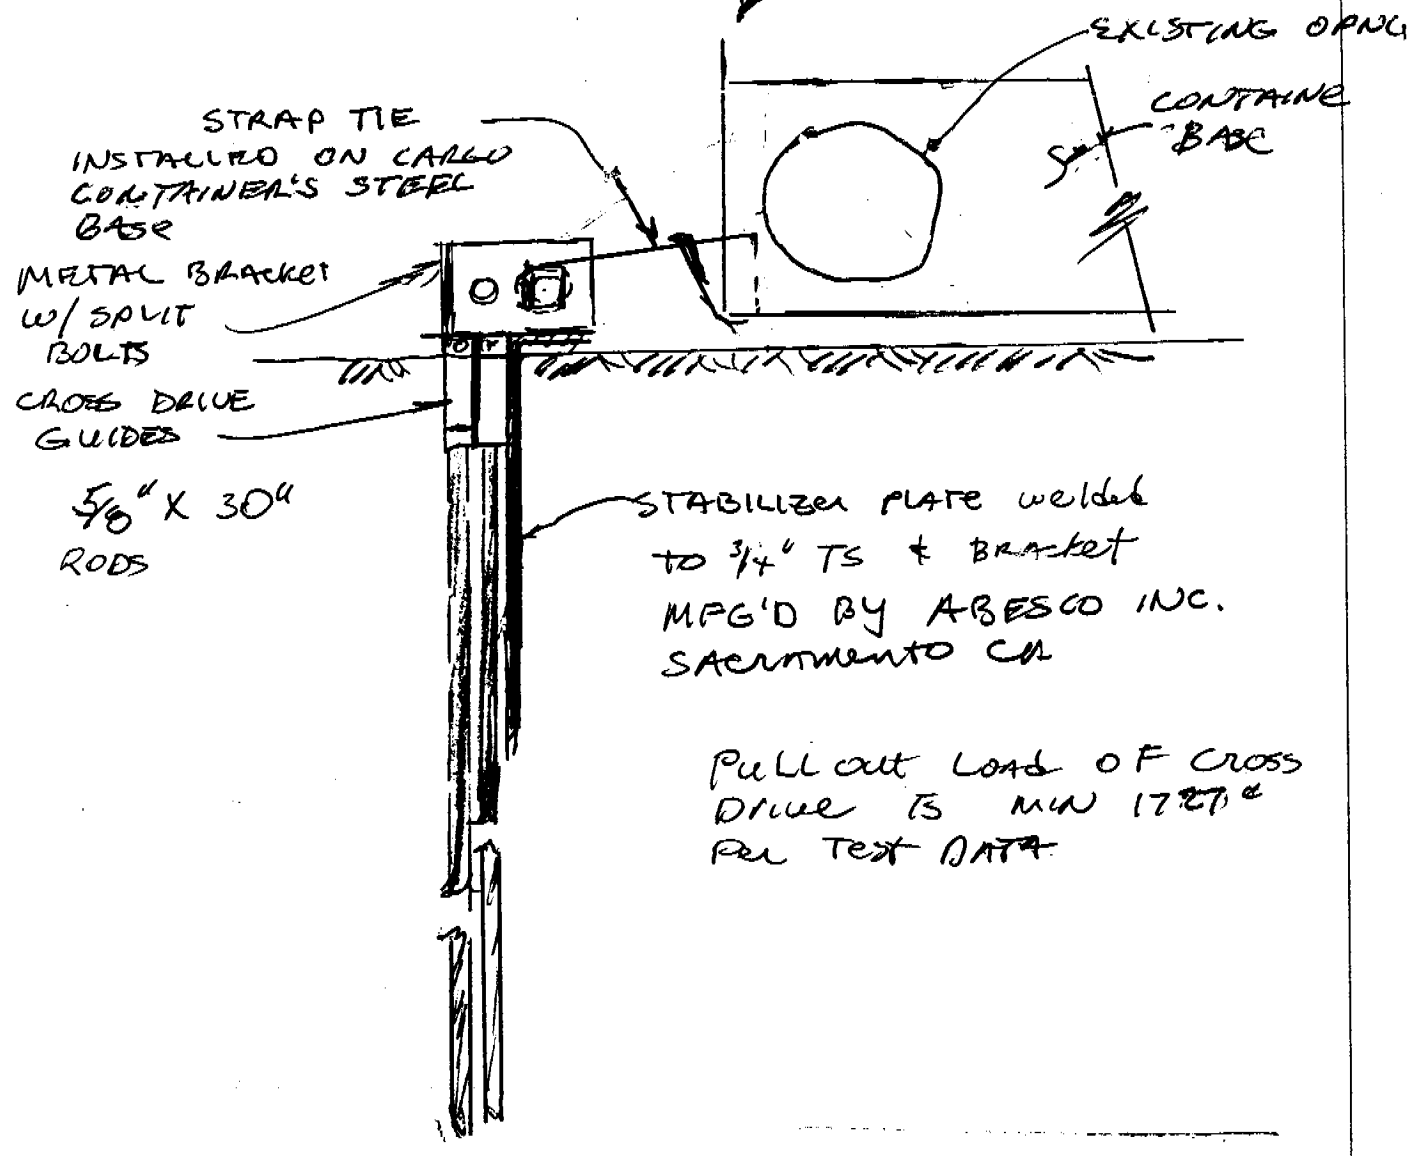 EXISTING OPNG
CONTAINE
BASE
STRAP TIE
INSTALLED ON CARGO
CONTAINER'S STEEL
BASE
METAL BRACKET
W/ SPLIT
BOLTS
CROSS DRIVE
GUIDES
5/8" X 30"
RODS
STABILIZER PLATE welded
to 3/4" TS & BRACKET
MFG'D BY ABESCO INC.
SACRAMENTO CA
PULL OUT LOAD OF CROSS
DRIVE IS MIN 1727#
PER TEST DATA